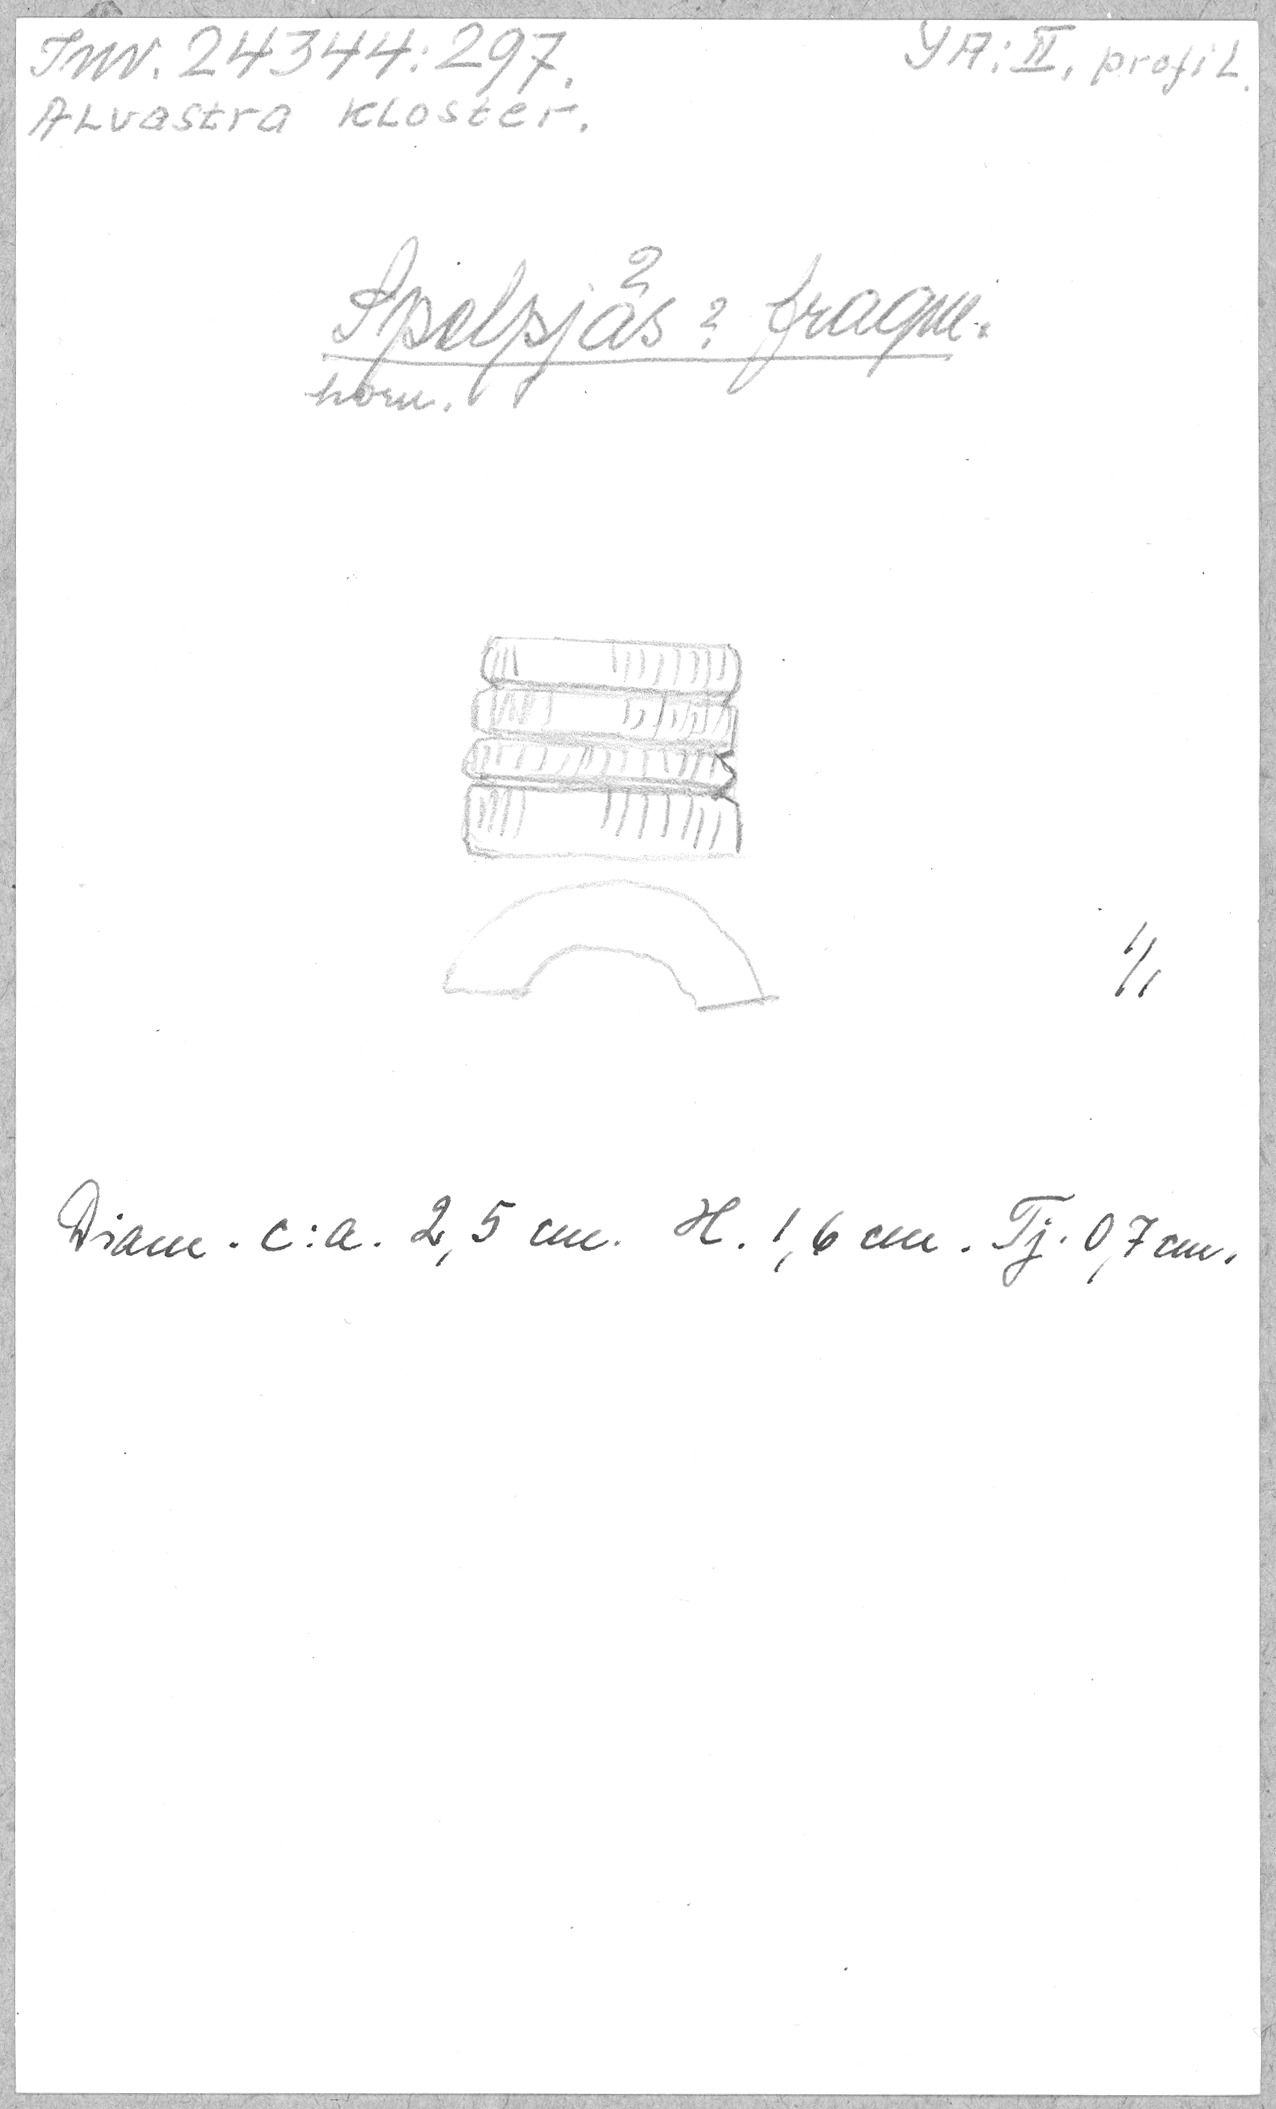 Inv. 24344:297.
YA:II, profil.
Alvastra kloster.
Spelpjäs? fragm.
horn.
1/1
Diam. c:a. 2,5 cm. H. 1,6 cm. Tj. 0,7 cm.